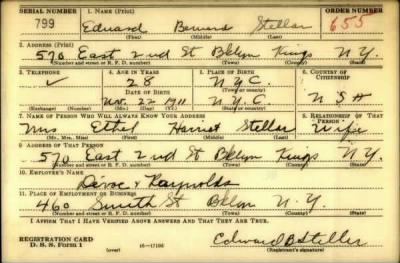 SERIAL NUMBER 1. NAME (Print) ORDER NUMBER
799 Edward Bernard Stellar 655
(First) (Middle) (Last)
2. ADDRESS (Print)
570 East 2nd St Bklyn Kings N.Y.
(Number and street or R. F. D. number) (Town) (County) (State)
3. TELEPHONE 4. AGE IN YEARS 5. PLACE OF BIRTH 6. COUNTRY OF CITIZENSHIP
✓ 28 N.Y.C.
DATE OF BIRTH (Town or county)
Nov. 22 1911 N.Y.C. USA
(Exchange) (Number) (Mo.) (Day) (Yr.) (State or country)
7. NAME OF PERSON WHO WILL ALWAYS KNOW YOUR ADDRESS 8. RELATIONSHIP OF THAT PERSON
Mrs Ethel Harriet Stellar Wife
(Mr., Mrs., Miss) (First) (Middle) (Last)
9. ADDRESS OF THAT PERSON
570 East 2nd St Bklyn Kings N.Y.
(Number and street or R. F. D. number) (Town) (County) (State)
10. EMPLOYER'S NAME
Devoe & Raynolds
11. PLACE OF EMPLOYMENT OR BUSINESS
460 Smith St Bklyn N.Y.
(Number and street or R. F. D. number) (Town) (County) (State)
I AFFIRM THAT I HAVE VERIFIED ABOVE ANSWERS AND THAT THEY ARE TRUE.
REGISTRATION CARD
D. S. S. FORM 1 (over) 16—17105 Edward B Stellar